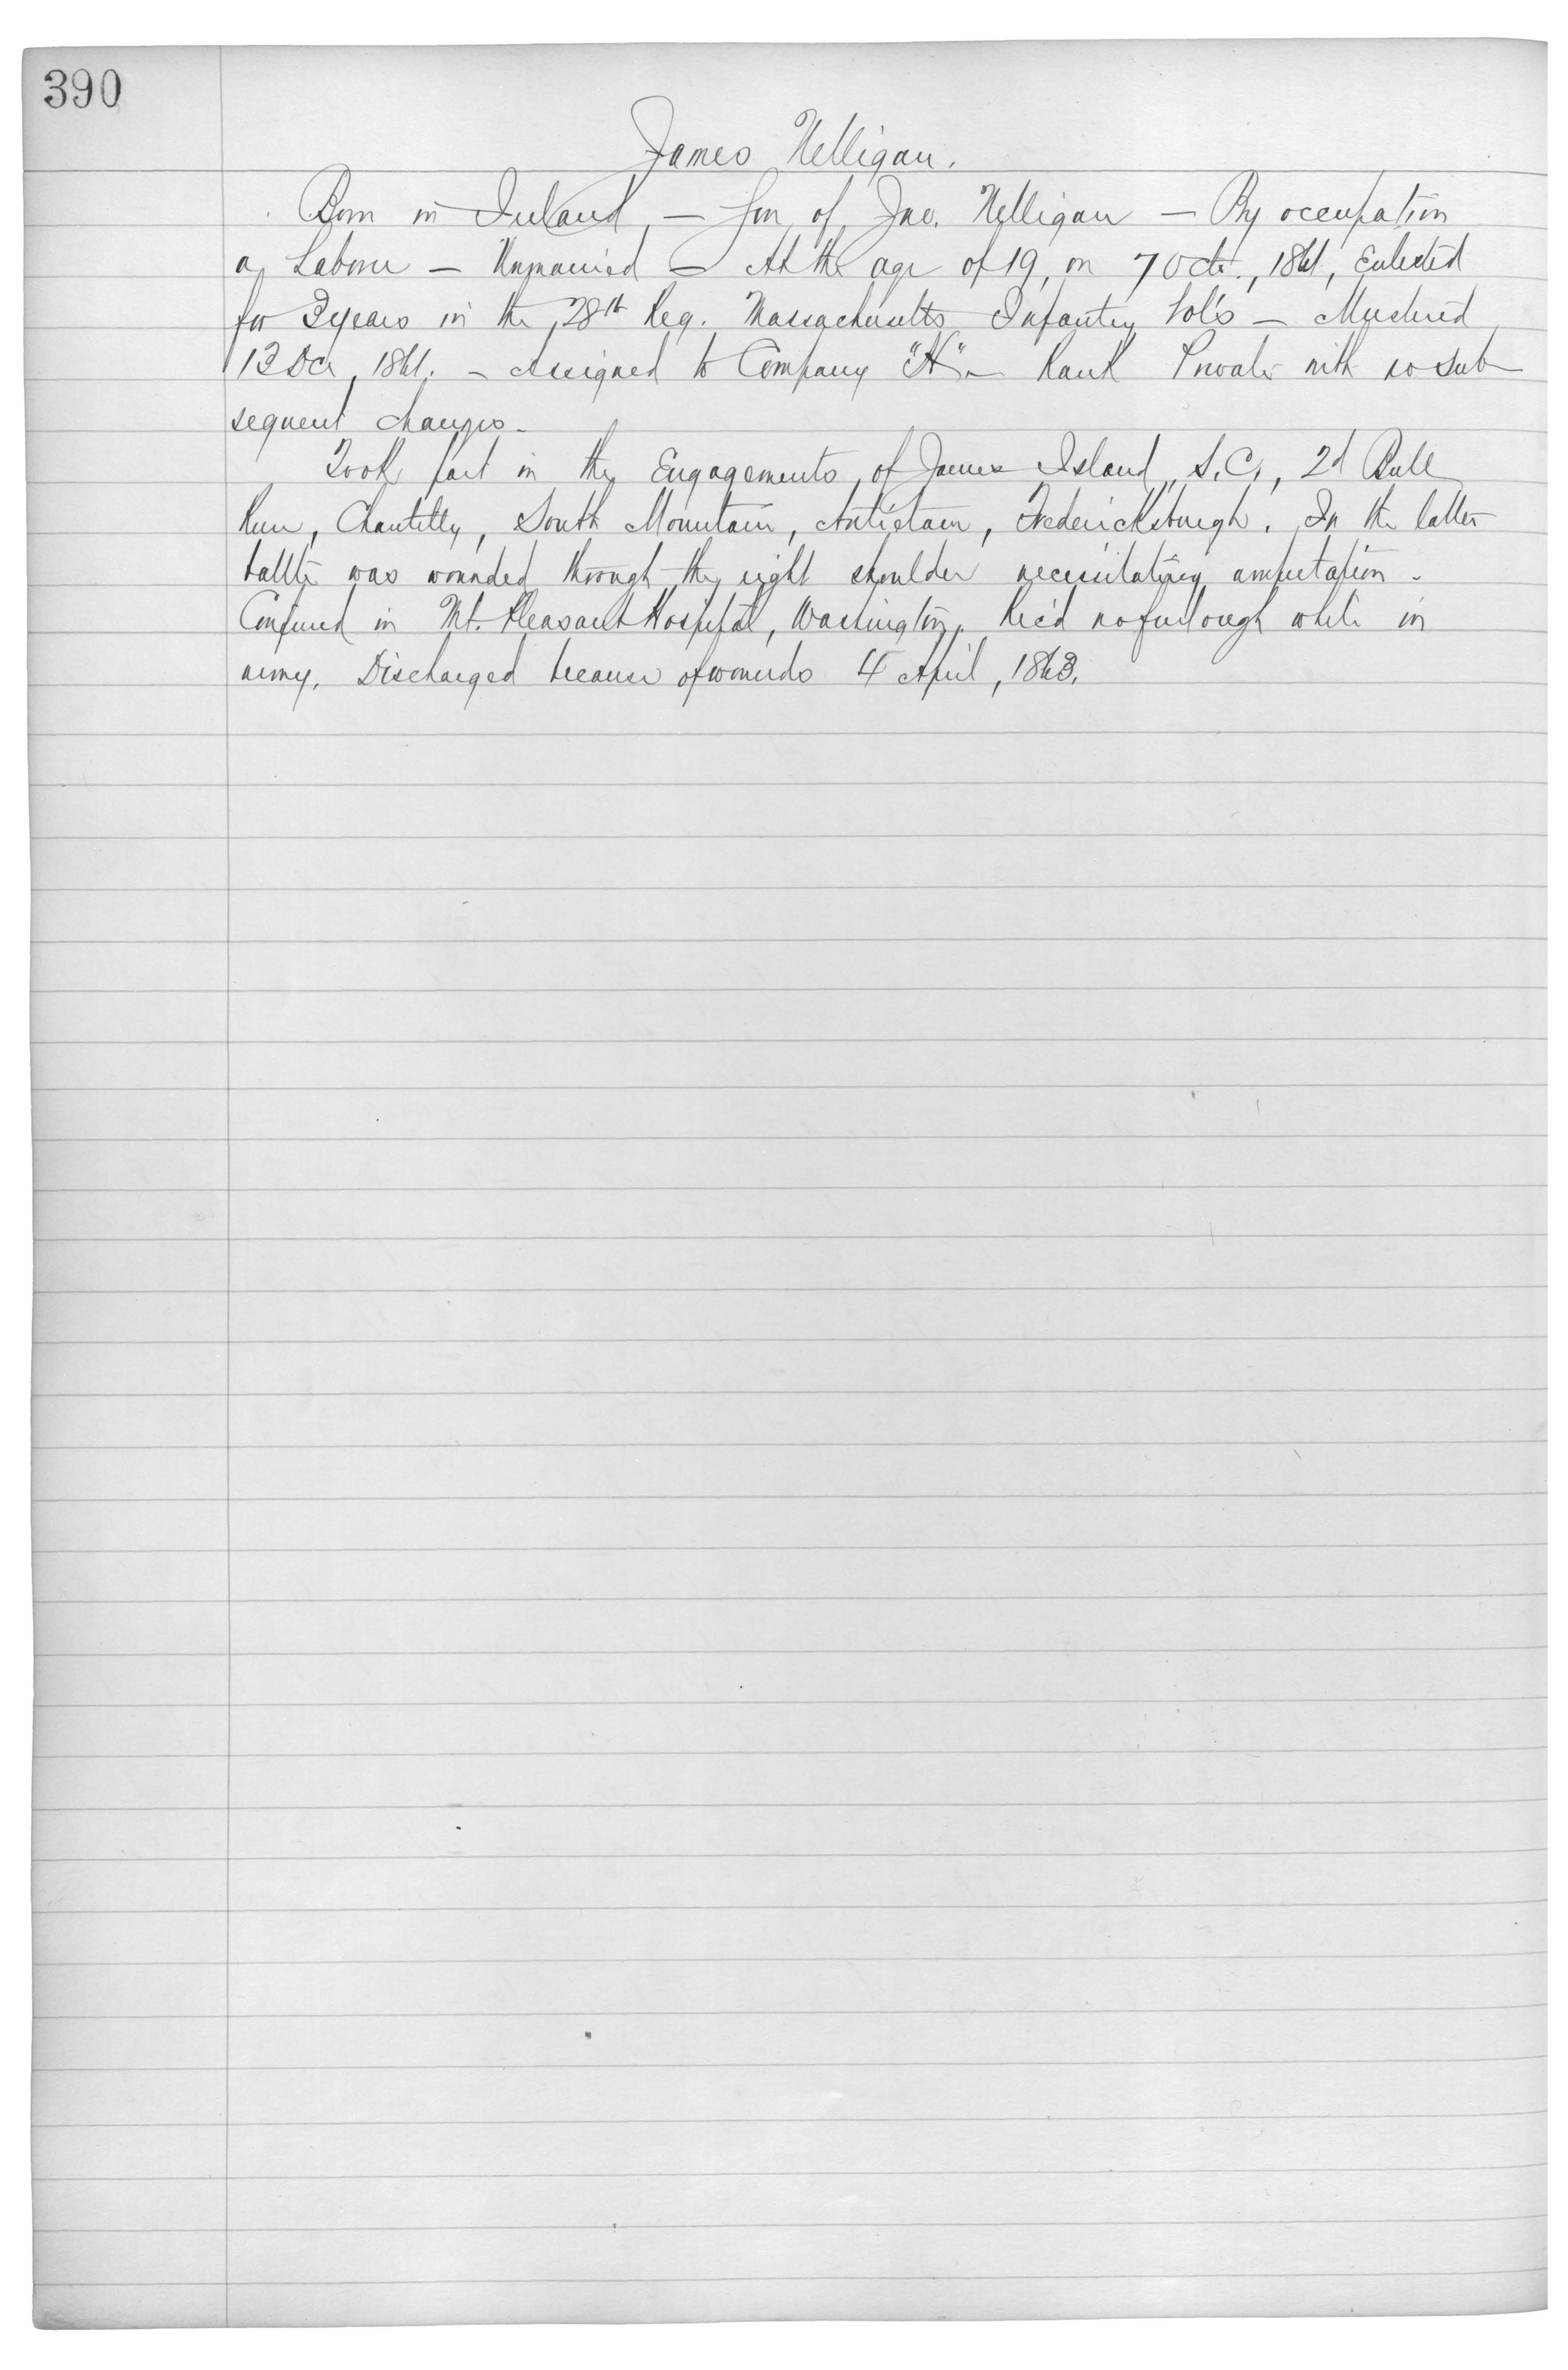 390
James Nelligan.
Born in Ireland, — Son of Jno. Nelligan — By occupation
a Laborer — Unmarried — At the age of 19, on 7 Oct., 1861, Enlisted
for 3 years in the 28th Reg. Massachusetts Infantry Vols — Mustered
13 Dec, 1861. — Assigned to Company "H" — Rank Private with no sub-
sequent changes —
Took part in the Engagements of James Island, S.C., 2d Bull
Run, Chantilly, South Mountain, Antietam, Fredericksburgh. In the latter
battle was wounded through the right shoulder necessitating amputation.
Confined in Mt. Pleasant Hospital, Washington. Rec'd no furlough while in
army. Discharged because of wounds 4 April, 1863.